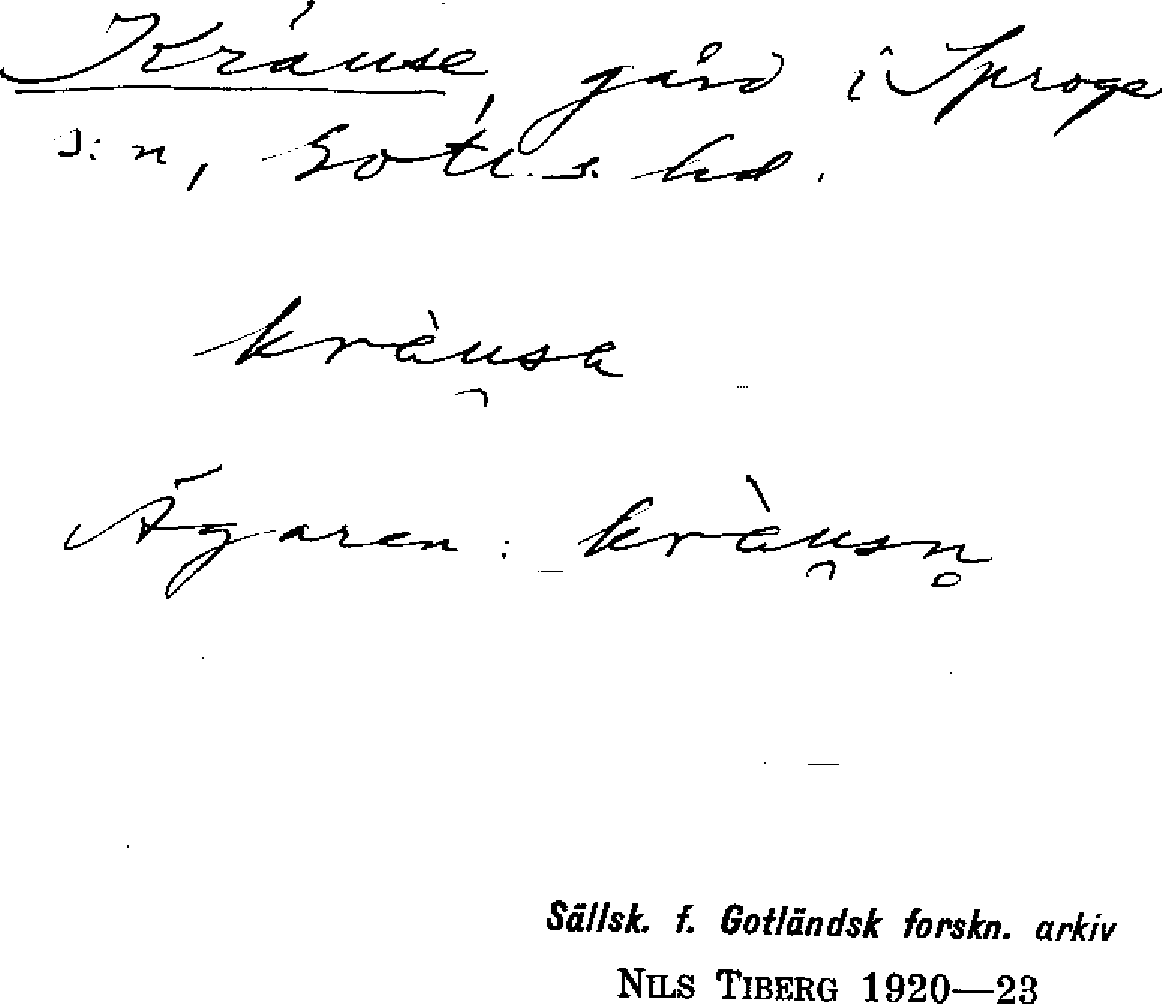 Kráuse, gård i Sproge
s:n, Gotl. s. hd.
kràu̯sa
Ägaren: kràu̯sn̥
Sällsk. f. Gotländsk forskn. arkiv
NILS TIBERG 1920—23